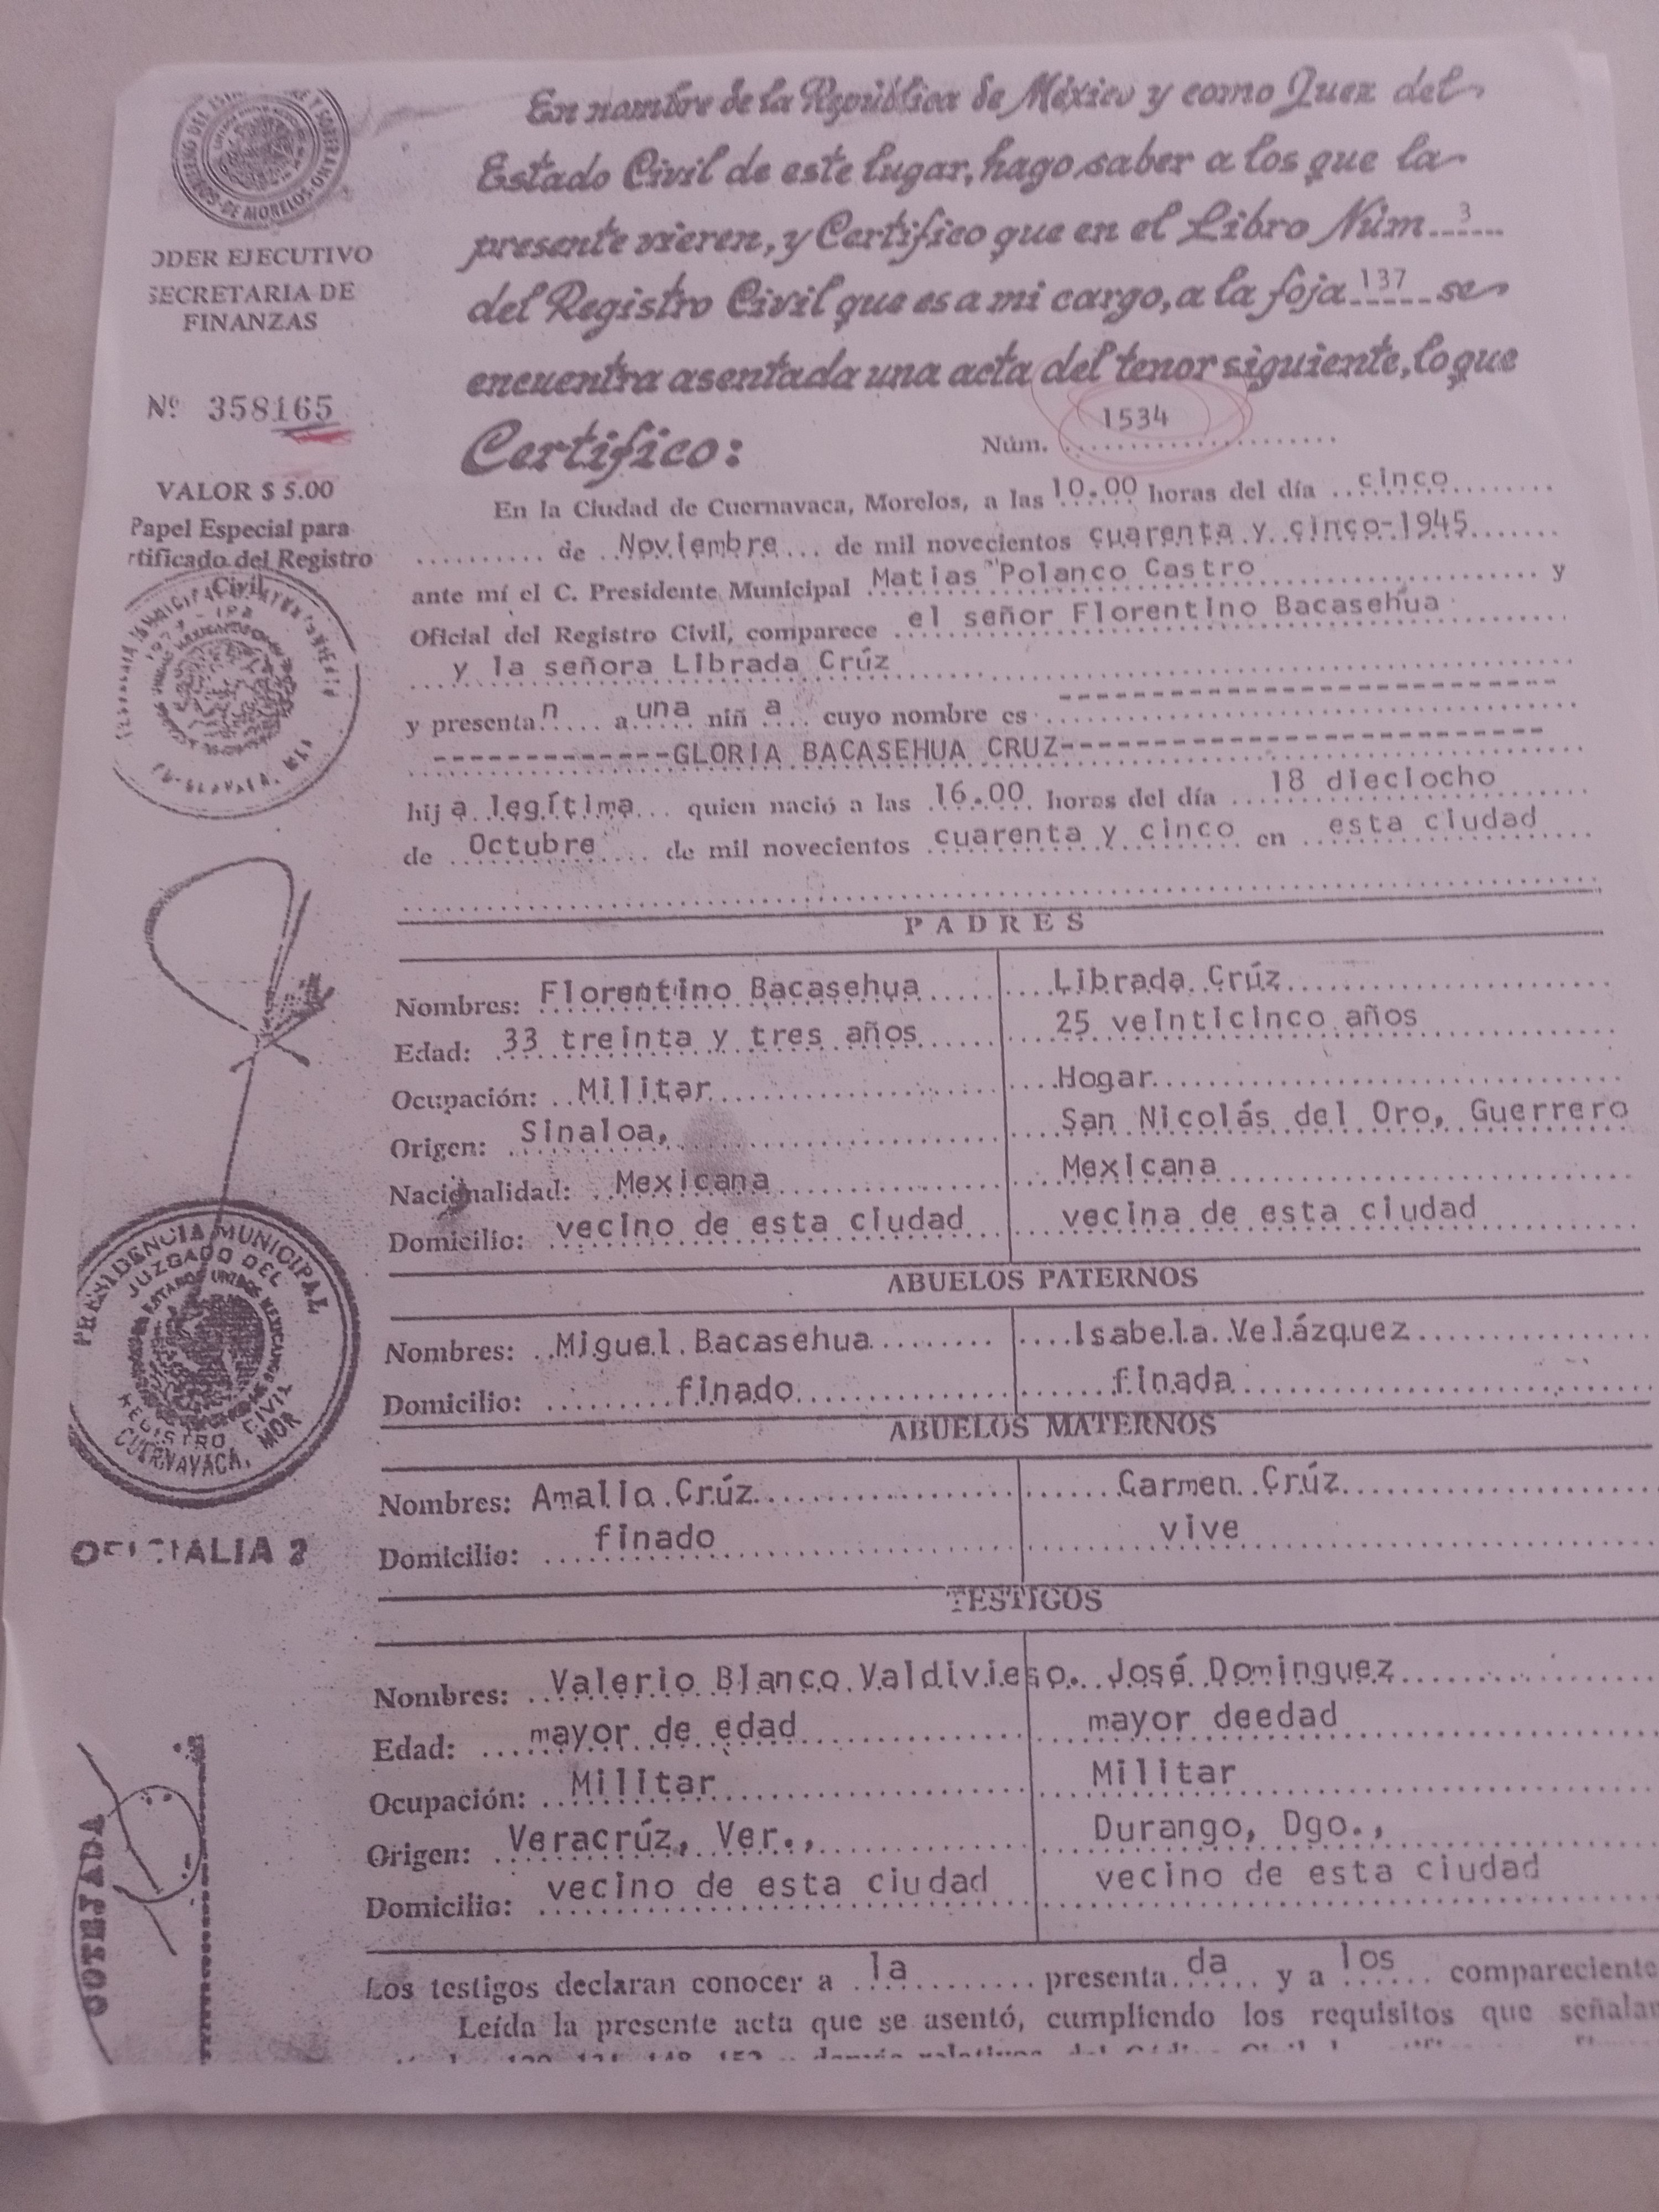 En nombre de la República de México y como Juez del
Estado Civil de este lugar, hago saber a los que la
presente vieren, y Certifico que en el Libro Núm. 3
del Registro Civil que es a mi cargo, a la foja 137 se
encuentra asentada una acta del tenor siguiente, lo que
Certifico:
Núm. 1534
ODER EJECUTIVO
SECRETARIA DE
FINANZAS
Nº 358165
VALOR $ 5.00
Papel Especial para
rtificado del Registro
Civil
En la Ciudad de Cuernavaca, Morelos, a las 10.00 horas del día cinco
de Noviembre de mil novecientos cuarenta y cinco-1945
ante mí el C. Presidente Municipal Matias Polanco Castro y
Oficial del Registro Civil, comparece el señor Florentino Bacasehua
y la señora Librada Crúz
y presentan a una niña cuyo nombre es
------------GLORIA BACASEHUA CRUZ------------
hija legítima quien nació a las 16.00 horas del día 18 dieciocho
de Octubre de mil novecientos cuarenta y cinco en esta ciudad
PADRES
Nombres: Florentino Bacasehua Librada Crúz
Edad: 33 treinta y tres años 25 veinticinco años
Ocupación: Militar Hogar
Origen: Sinaloa, San Nicolás del Oro, Guerrero
Nacionalidad: Mexicana Mexicana
Domicilio: vecino de esta ciudad vecina de esta ciudad
ABUELOS PATERNOS
Nombres: Miguel Bacasehua Isabela Velázquez
Domicilio: finado finada
ABUELOS MATERNOS
Nombres: Amalio Crúz Carmen Crúz
Domicilio: finado vive
TESTIGOS
Nombres: Valerio Blanco Valdivieso. José Dominguez
Edad: mayor de edad mayor deedad
Ocupación: Militar Militar
Origen: Veracrúz, Ver., Durango, Dgo.,
Domicilio: vecino de esta ciudad vecino de esta ciudad
Los testigos declaran conocer a la presentada y a los compareciente
Leída la presente acta que se asentó, cumpliendo los requisitos que señalan
PRESIDENCIA MUNICIPAL
JUZGADO DEL
ESTADOS UNIDOS MEXICANOS
REGISTRO CIVIL
CUERNAVACA, MOR
OFICIALIA 2
COTEJADA